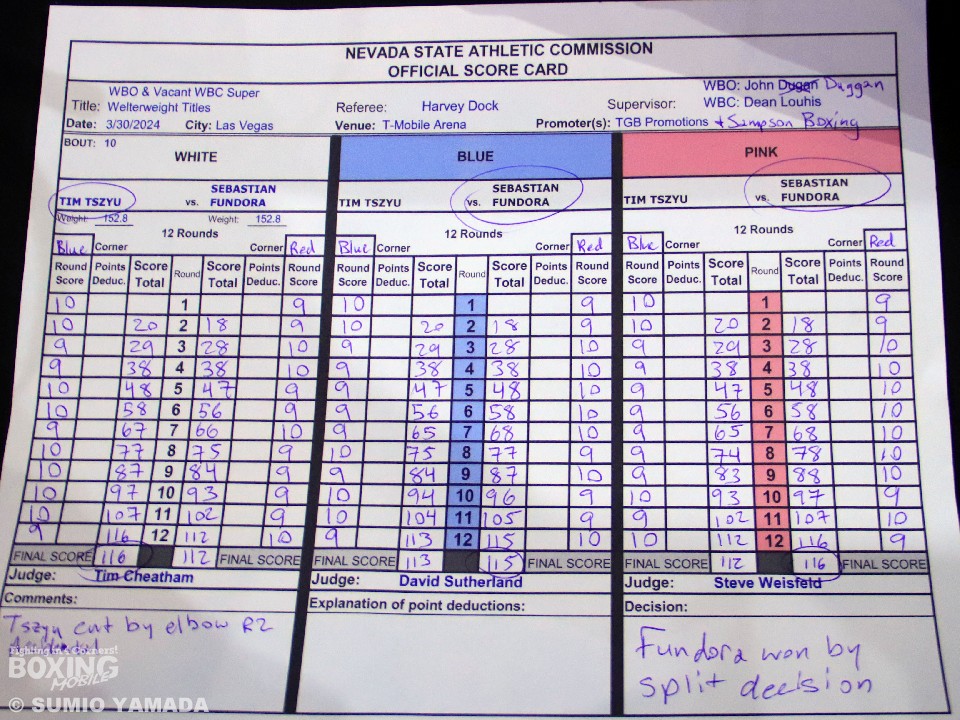 NEVADA STATE ATHLETIC COMMISSION
OFFICIAL SCORE CARD
WBO & Vacant WBC Super WBO: John Duggan
Title: Welterweight Titles Referee: Harvey Dock Supervisor: WBC: Dean Louhis
Date: 3/30/2024 City: Las Vegas Venue: T-Mobile Arena Promoter(s): TGB Promotions + Sampson Boxing
BOUT: 10
WHITE BLUE PINK
TIM TSZYU vs. SEBASTIAN FUNDORA TIM TSZYU vs. SEBASTIAN FUNDORA TIM TSZYU vs. SEBASTIAN FUNDORA
Weight: 152.8 Weight: 152.8
12 Rounds 12 Rounds 12 Rounds
Blue Corner Corner Red Blue Corner Corner Red Blue Corner Corner Red
Round Score Points Deduc. Score Total Round Score Total Points Deduc. Round Score Round Score Points Deduc. Score Total Round Score Total Points Deduc. Round Score Round Score Points Deduc. Score Total Round Score Total Points Deduc. Round Score
10 1 9 10 1 9 10 1 9
10 20 2 18 9 10 20 2 18 9 10 20 2 18 9
9 29 3 28 10 9 29 3 28 10 9 29 3 28 10
9 38 4 38 10 9 38 4 38 10 9 38 4 38 10
10 48 5 47 9 9 47 5 48 10 9 47 5 48 10
10 58 6 56 9 9 56 6 58 10 9 56 6 58 10
9 67 7 66 10 9 65 7 68 10 9 65 7 68 10
10 77 8 75 9 10 75 8 77 9 9 74 8 78 10
10 87 9 84 9 9 84 9 87 10 9 83 9 88 10
10 97 10 93 9 10 94 10 96 9 10 93 10 97 9
10 107 11 102 9 10 104 11 105 9 9 102 11 107 10
9 116 12 112 10 9 113 12 115 10 10 112 12 116 9
FINAL SCORE 116 112 FINAL SCORE FINAL SCORE 113 115 FINAL SCORE FINAL SCORE 112 116 FINAL SCORE
Judge: Tim Cheatham Judge: David Sutherland Judge: Steve Weisfeld
Comments: Explanation of point deductions: Decision:
Tszyu cut by elbow R2
Fundora won by
split decision
Fighting in 4 Corners!
BOXING
MOBILE
© SUMIO YAMADA